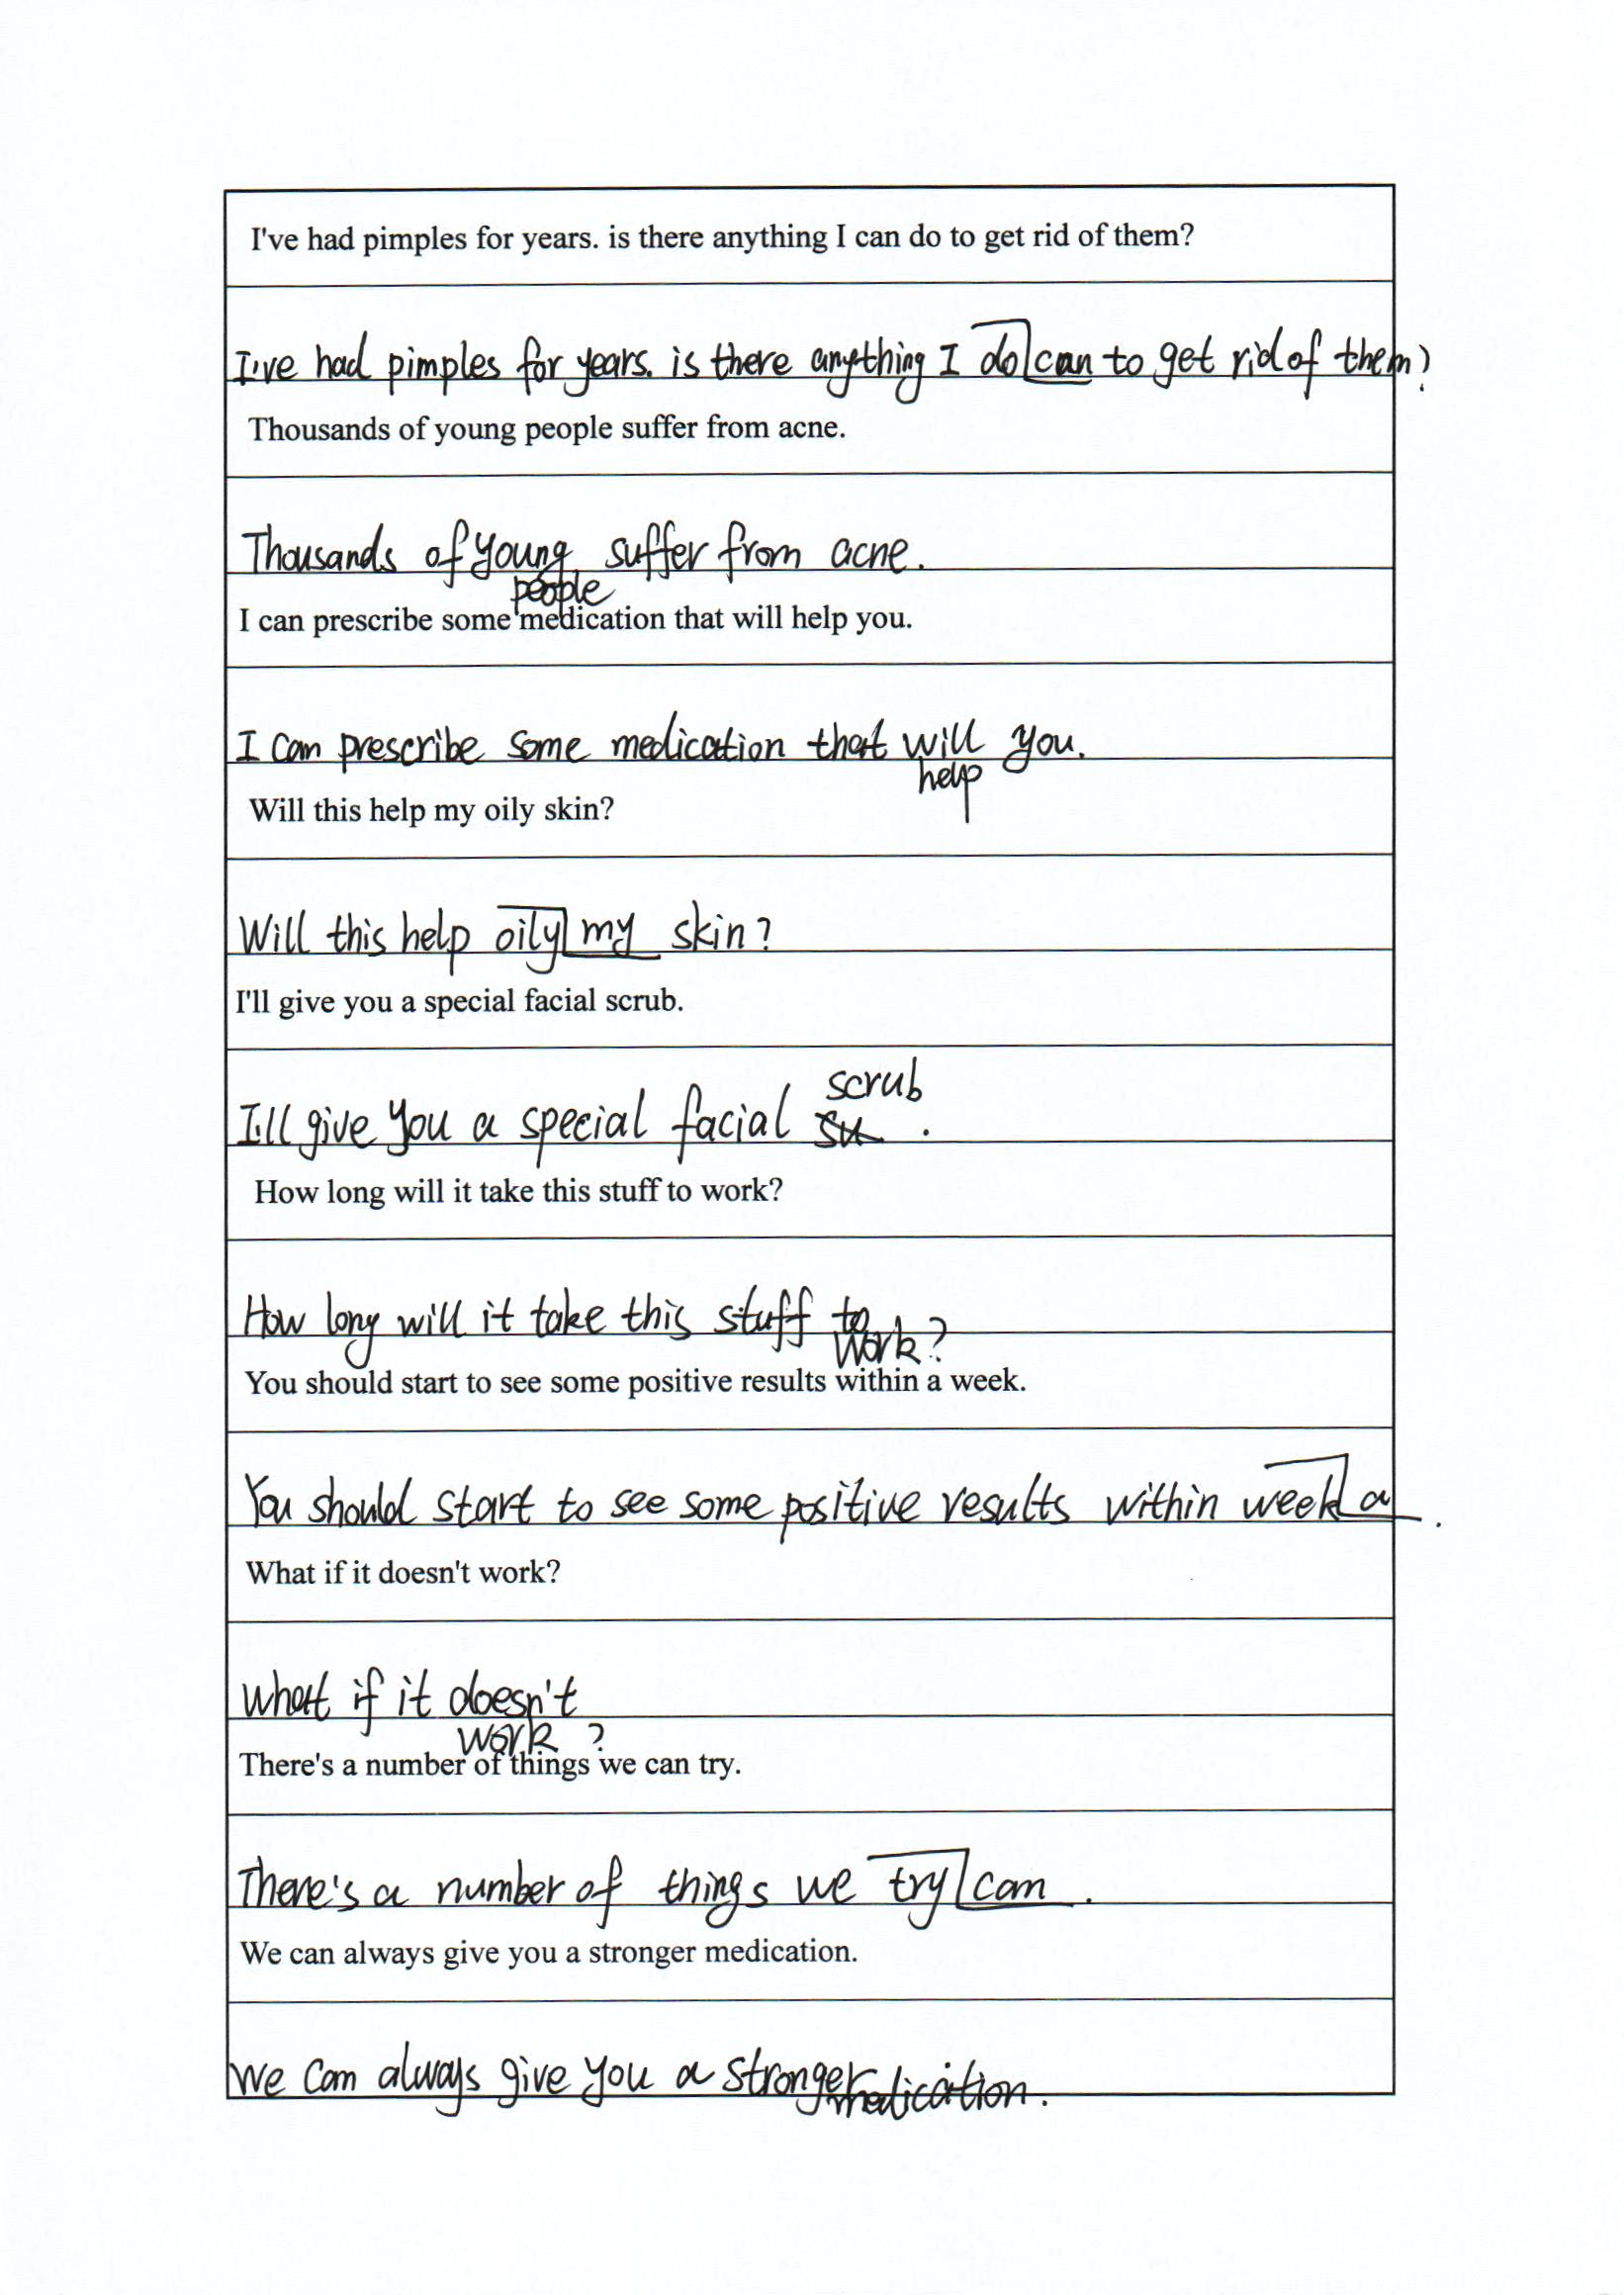 I've had pimples for years. is there anything I can do to get rid of them?
I've had pimples for years. is there anything I do can to get rid of them?
Thousands of young people suffer from acne.
Thousands of young people suffer from acne.
I can prescribe some medication that will help you.
I can prescribe some medication that will help you.
Will this help my oily skin?
Will this help oily my skin?
I'll give you a special facial scrub.
I'll give you a special facial scrub.
How long will it take this stuff to work?
How long will it take this stuff to work?
You should start to see some positive results within a week.
You should start to see some positive results within week a.
What if it doesn't work?
What if it doesn't work?
There's a number of things we can try.
There's a number of things we try can.
We can always give you a stronger medication.
We can always give you a stronger medication.